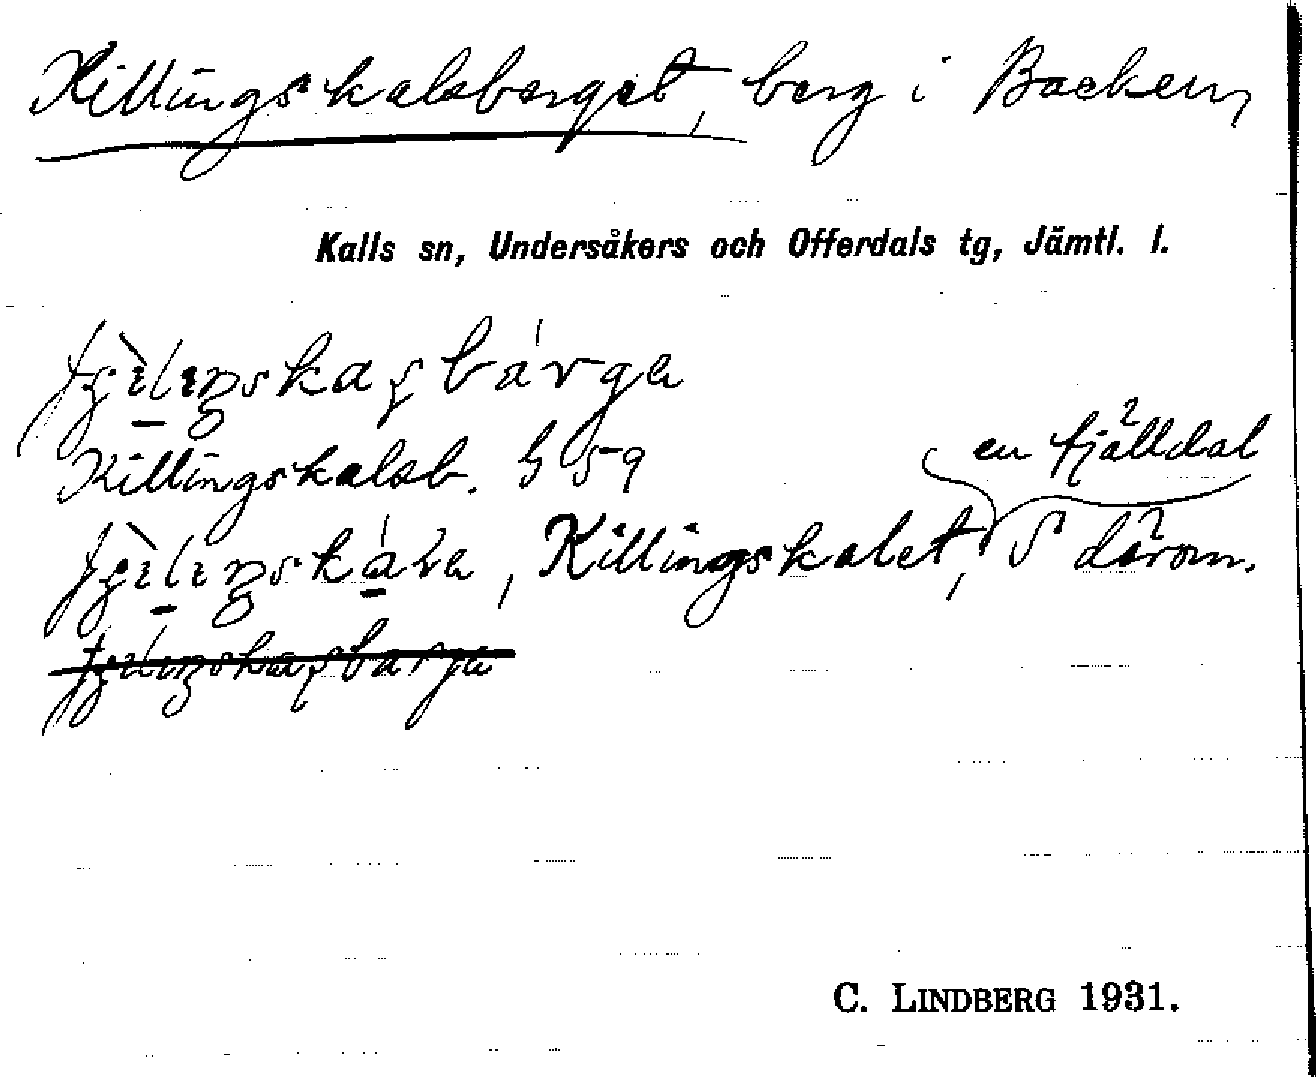 Killingskalsberget, berg i Backen,
Kalls sn, Undersåkers och Offerdals tg, Jämtl. l.
Killingskalsb. G 59
en fjälldal
Killingskalet, S därom.
C. LINDBERG 1931.